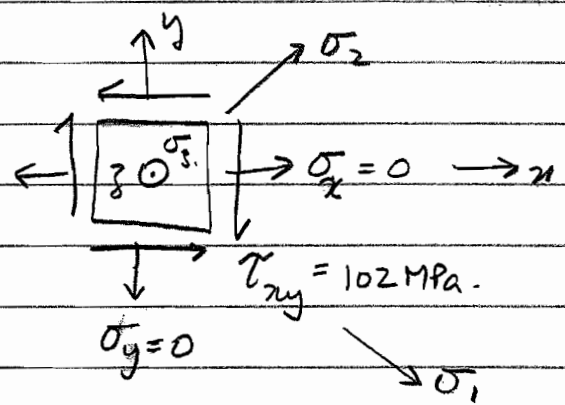 y
σ₂
z σ₃.
σₓ = 0
x
τₓᵧ = 102 MPa.
σᵧ = 0
σ₁